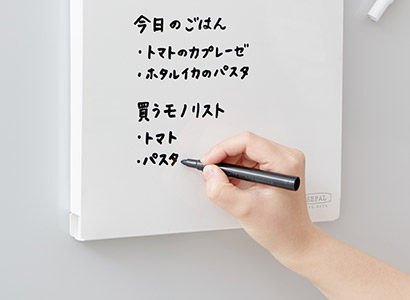 今日のごはん
・トマトのカプレーゼ
・ホタルイカのパスタ
買うモノリスト
・トマト
・パスタ
SEPAL